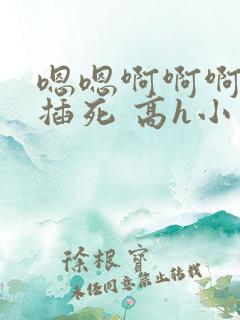 嗯嗯啊啊啊
插死 高h小
徐根宝
未经同意禁止转载